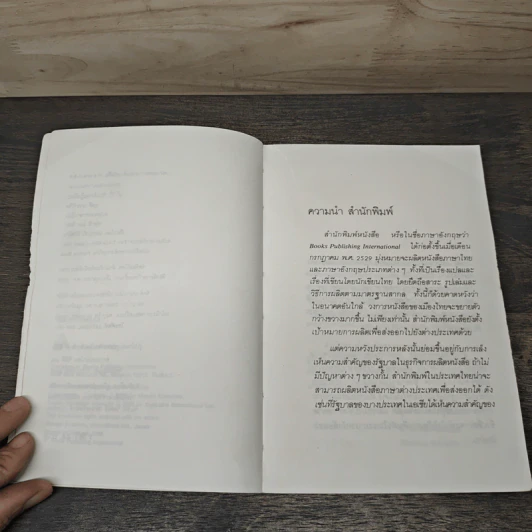 ความนำ สำนักพิมพ์
สำนักพิมพ์หนังสือ หรือในชื่อภาษาอังกฤษว่า
Books Publishing International ได้ก่อตั้งขึ้นเมื่อเดือน
กรกฎาคม พ.ศ. 2529 มุ่งหมายจะผลิตหนังสือภาษาไทย
และภาษาอังกฤษประเภทต่าง ๆ ทั้งที่เป็นเรื่องแปลและ
เรื่องที่เขียนโดยนักเขียนไทย โดยยึดถือสาระ รูปเล่มและ
วิธีการผลิตตามมาตรฐานสากล ทั้งนี้ก็ด้วยคาดหวังว่า
ในอนาคตอันใกล้ วงการหนังสือของเมืองไทยจะขยายตัว
กว้างขวางมากขึ้น ไม่เพียงเท่านั้น สำนักพิมพ์หนังสือยังตั้ง
เป้าหมายการผลิตเพื่อส่งออกไปยังต่างประเทศด้วย
แต่ความหวังประการหลังนั้นย่อมขึ้นอยู่กับการเล็ง
เห็นความสำคัญของรัฐบาลในธุรกิจการผลิตหนังสือ ถ้าไม่
มีปัญหาต่าง ๆ ขวางกั้น สำนักพิมพ์ในประเทศไทยน่าจะ
สามารถผลิตหนังสือภาษาต่างประเทศเพื่อส่งออกได้ ดัง
เช่นที่รัฐบาลของบางประเทศในเอเชียได้เห็นความสำคัญของ